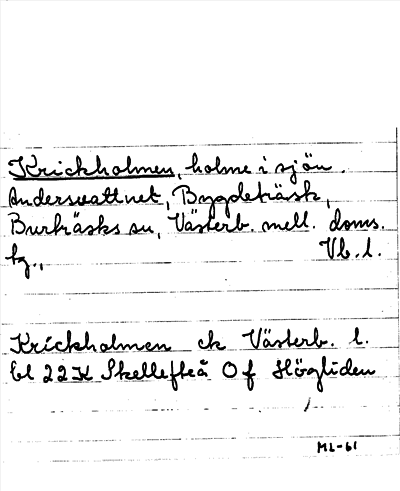 Krickholmen, holme i sjön
Andersvattnet, Bygdeträsk,
Burträsks sn, Västerb. mell. doms.
tg., Vb. l.
Krickholmen ek Västerb. l.
bl 22 K Skellefteå Of Högliden
ML-61